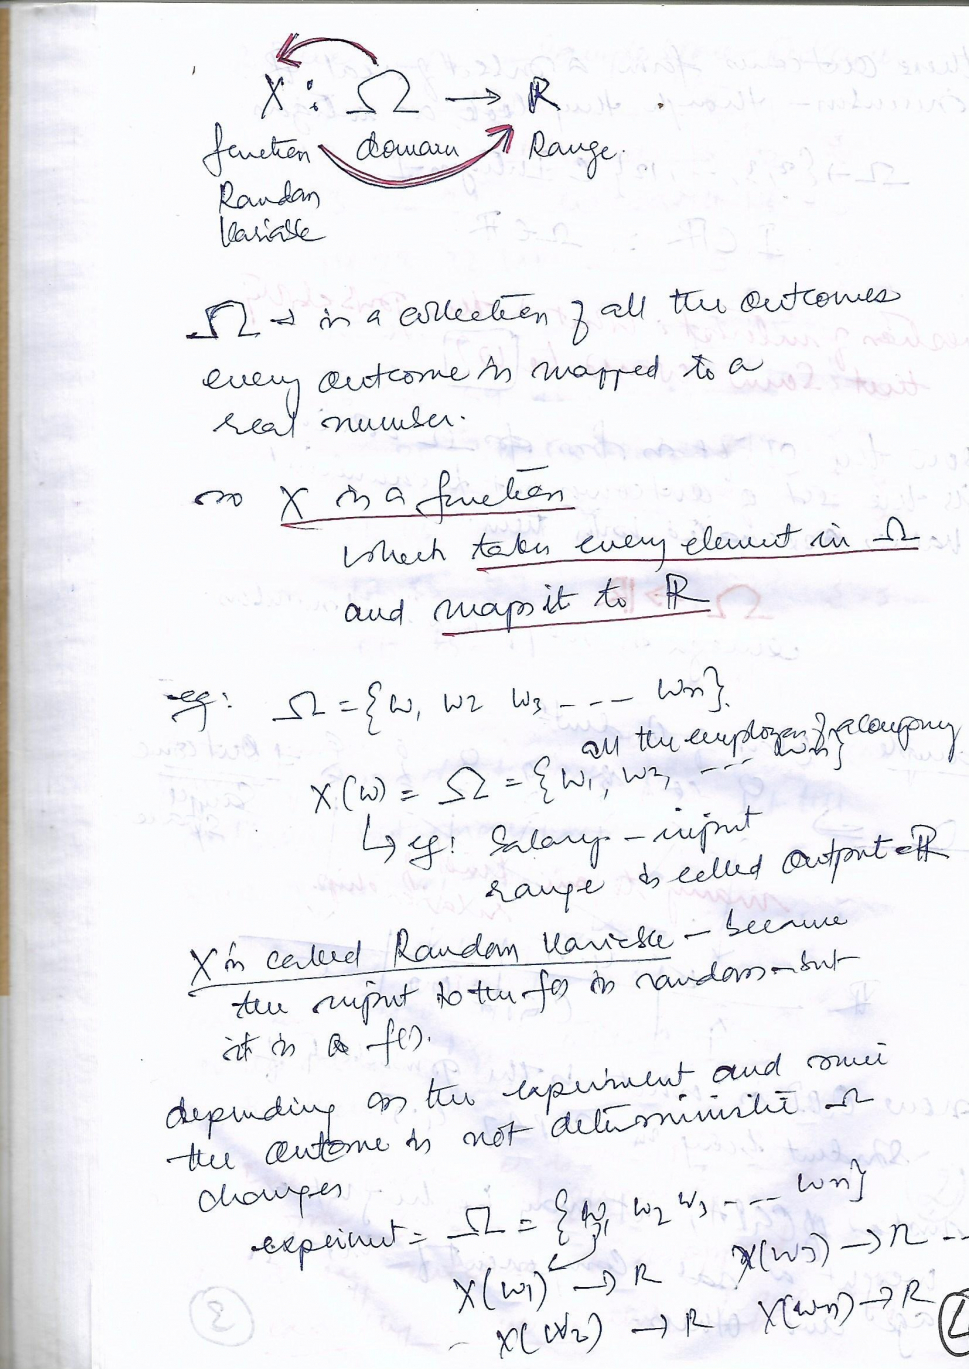 X : Ω → R
function domain Range.
Random
Variable
Ω → is a collection of all the outcomes
every outcome is mapped to a
real number.
so X is a function
which takes every element in Ω
and maps it to R
eg: Ω = {w1 w2 w3 - - -- wn}.
all the employees of a company
X(w) = Ω = {w1, w2, --- wn}
↳ eg: Salary - input
range is called output = R
X is called Random Variable - because
the input to the fn is random - but
it is a f().
depending on the experiment and since
the outcome is not deterministic Ω
changes
experiment = Ω = {w1 w2 w3 --- wn}
X(w1) → R X(w3) → R --
X(w2) → R X(wn) → R